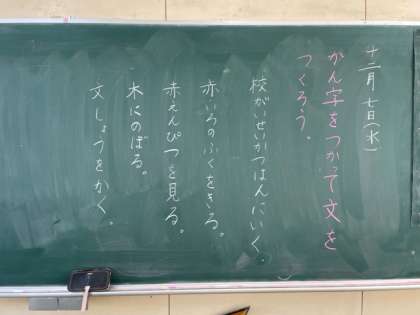 十二月七日(水)
かん字をつかって文を
つくろう。
校がいせいかつはんにいく。
赤いろのふくをきる。
赤えんぴつを見る。
木にのぼる。
文しょうをかく。